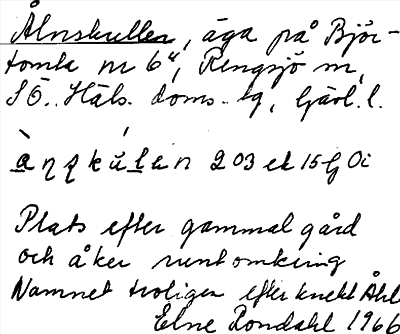 Ålnskullen, äga på Björ-
tomta nr 6⁴, Rengsjö sn,
S Ö. Häls. doms. lg, Gävl. l.
203 ek 15 G Oi
Plats efter gammal gård
och åker runt omkring
Namnet troligen efter knekt Åhl
Elne Rondahl 1966